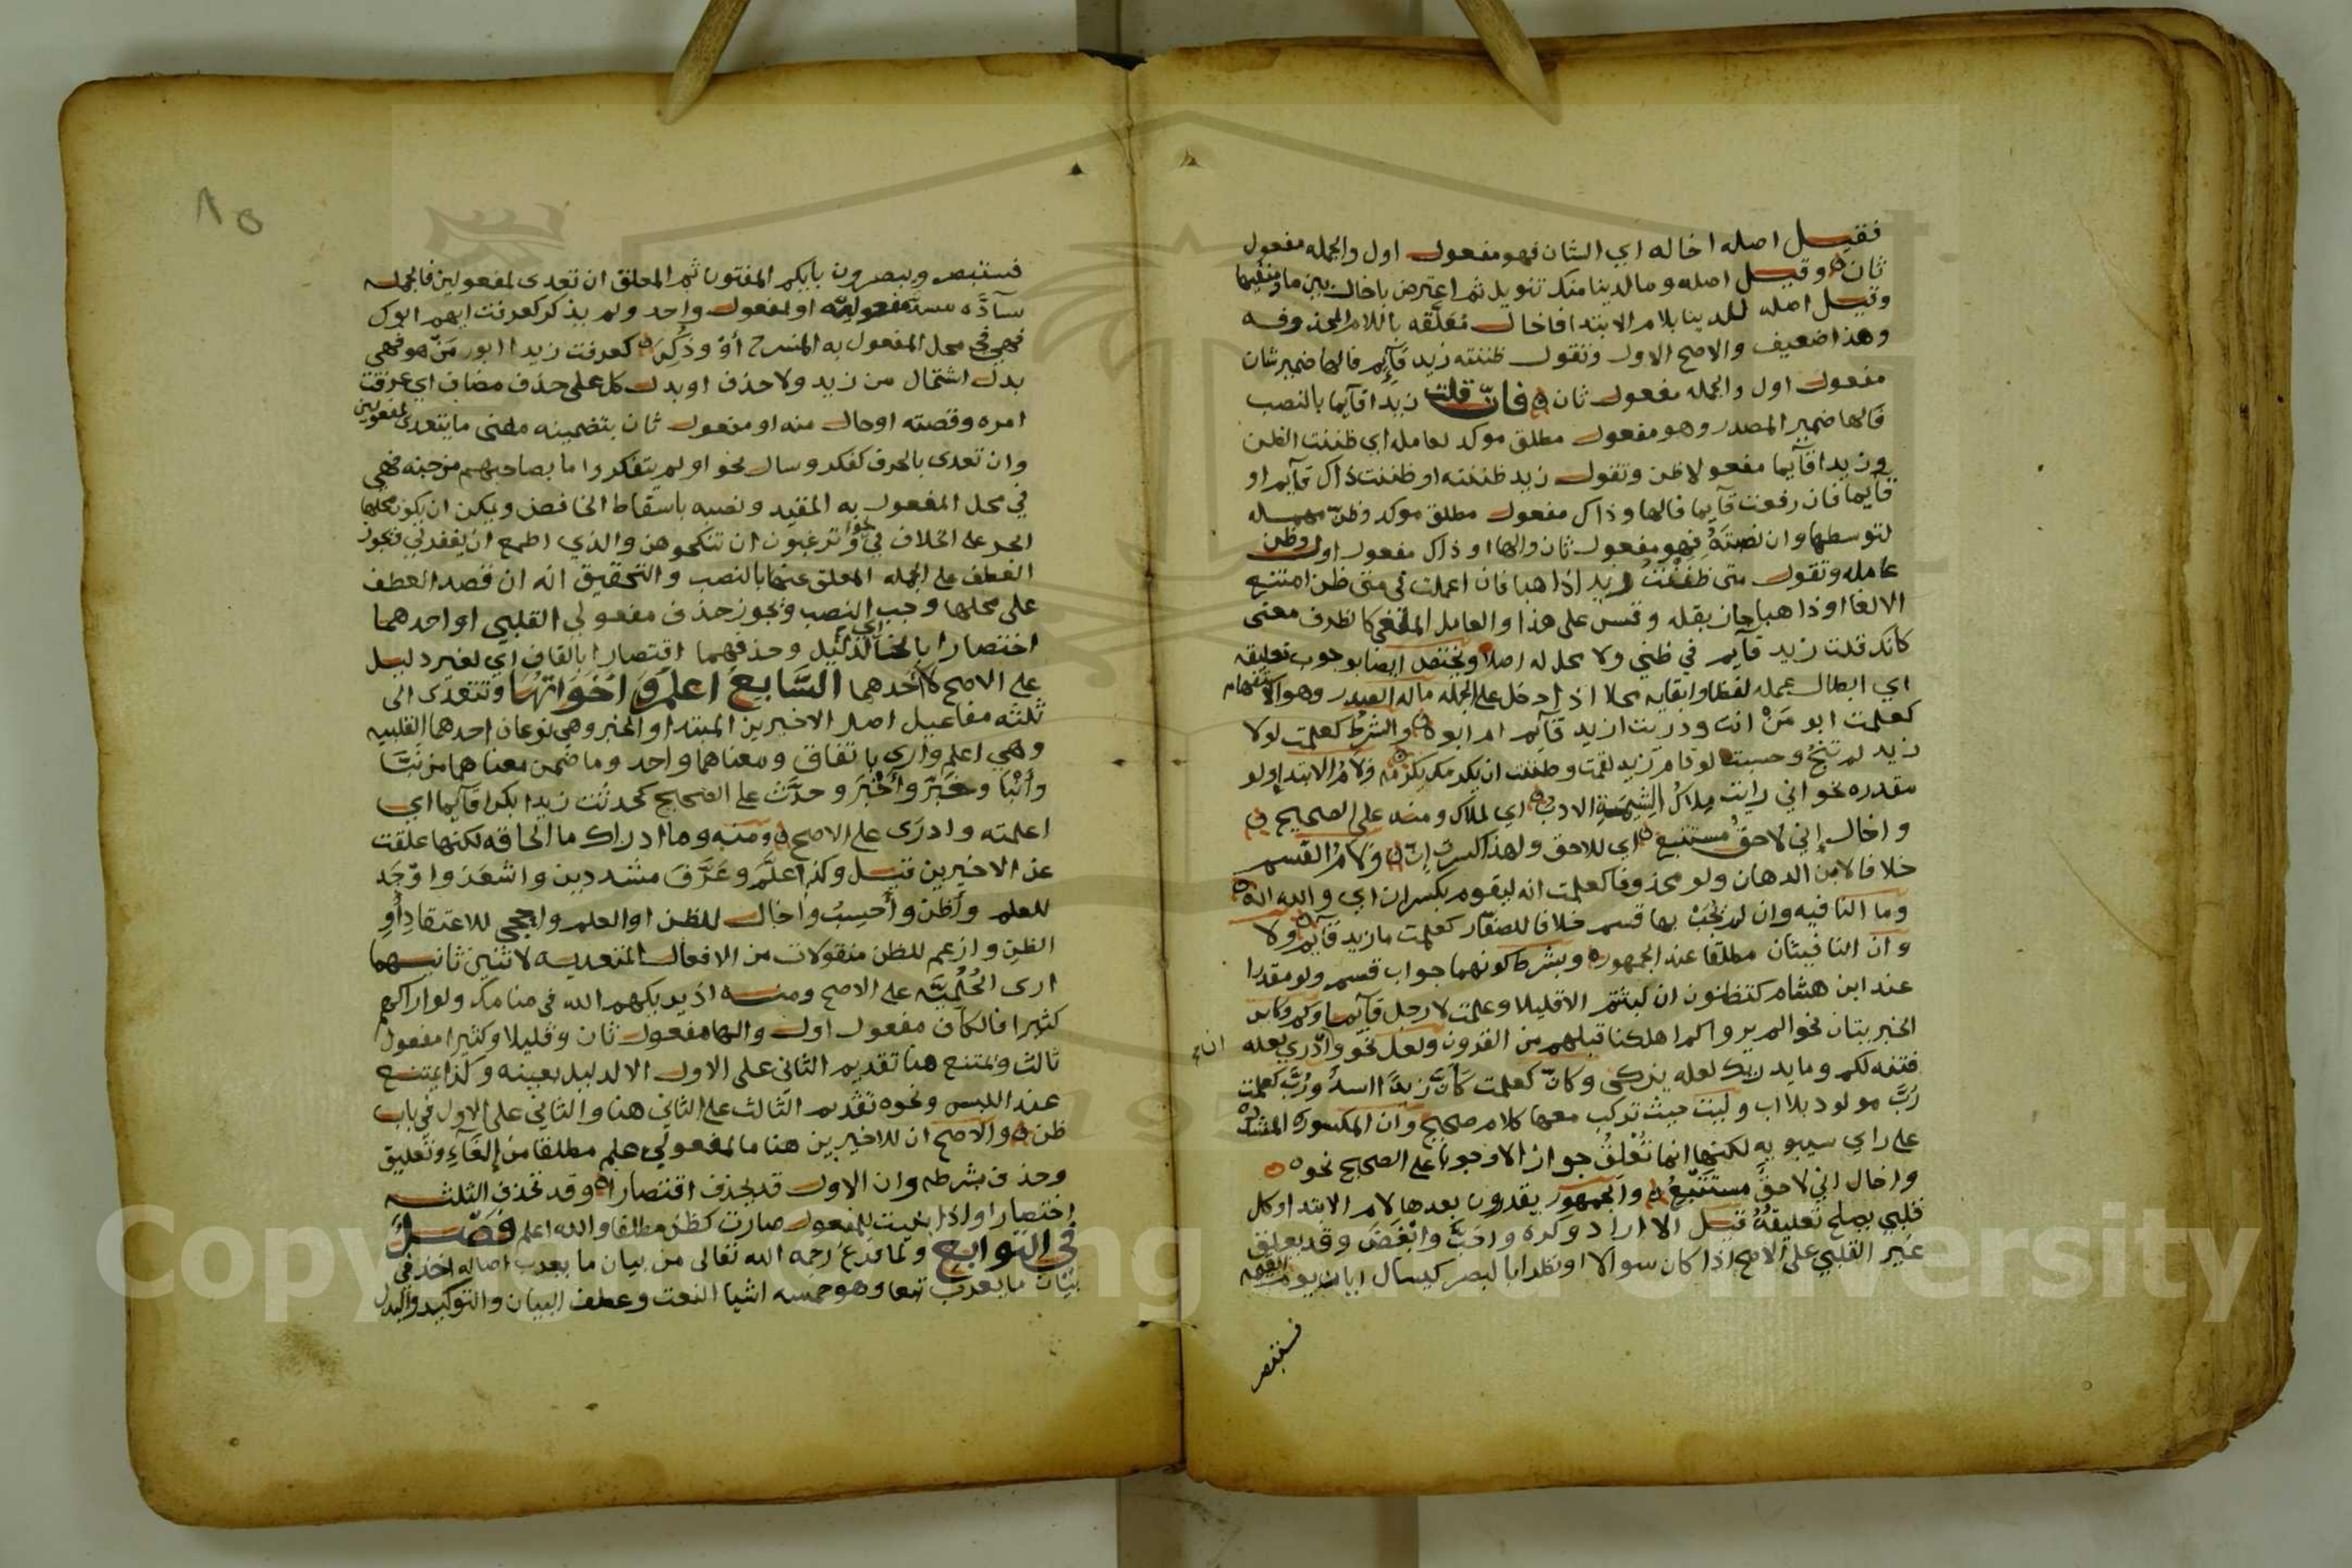 فقيل اصله اخاله اي الشان فهو مفعول اول والجمله مفعول
ثان وقيل اصله وما لدينا منك تنويل ثم اعترض باخال بين ما ومنفيها
وقيل اصله للدينا بلام الابتدا فاخال معلقه باللام المحذوفه
وهذا ضعيف والاصح الاول وتقول ظننته زيد قآيم فالها ضمير شان
مفعول اول والجمله مفعول ثان فان قلت زيدا قآيما بالنصب
فالها ضمير المصدر وهو مفعول مطلق موكد لعامله اي ظننت الظن
وزيدا قآيما مفعولا ظن وتقول زيد ظننته او ظننت ذاك قآيم او
قآيما فان رفعت قآيما فالها وذاك مفعول مطلق موكد وظن مهمله
لتوسطها وان نصبته فهو مفعول ثان والها او ذاك مفعول اول وظن
عامله وتقول متى ظننت زيدا ذاهبا فان اعملت في متى ظن امتنع
الالغا او ذاهبا جاز بقله وقس على هذا والعامل الملغي كالظرف معنى
كانك قلت زيد قآيم في ظني ولا محل له اصلا ويختص ايضا بوجوب تعليقه
اي ابطال عمله لفظا وابقايه محلا اذا دخل على الجمله ماله الصدر وهو الاستفهام
كعلمت ابو من انت ودريت ازيد قآيم ام ابوه والشرط كعلمت لولا
زيد لم تنج وحسبت لو قام زيد لقمت وظننت ان يكرمك بكر ولام الابتدا ولو
مقدره نحو اني رايت ملاك الشيمة الادب اي لملاك ومنه على الصحيح
واخال إني لاحق مستتبع اي للاحق ولهذا كسرت إن ولام القسم
خلافا لابن الدهان ولو محذوفا كعلمت انه ليقوم بكسر ان اي والله انه
وما النافيه وان لم نجب بها قسم خلافا للصفار كعلمت ما زيد قآيم ولا
وان النافيتان مطلقا عند الجمهور وبشرط كونهما جواب قسم ولو مقدرا
عند ابن هشام كتظنون ان لبثتم الا قليلا وعلمت لا رجل قآيما وكم وكاين
الخبريتان نحو الم يروا كم اهلكنا قبلهم من القرون ولعل نحو وادري لعله
فتنه لكم وما يدريك لعله يزكى وكان كعلمت كأن زيدا اسد ورب كعلمت
رب مولود بلا اب وليت حيث تركب معها كلام صحيح وان المكسوره المشدده
على راي سيبويه لكنها انما تعلق جوازا لا وجوبا على الصحيح نحو
واخال اني لاحق مستتبع والجمهور يقدرون بعدها لام الابتدا وكل
قلبي يصلح تعليقه قيل الا اراد وكره واحب وابغض وقد يعلق
غير القلبي على الاصح اذا كان سوالا او نظرا بالبصر كيسال ايان يوم القيمه
فستبصر
فستبصر ويبصرون بأيكم المفتون ثم المعلق ان تعدى لمفعولين فالجمله
سآدة مسد مفعوليه او لمفعول واحد ولم يذكر كعرفت ايهم ابوك
فهي في محل المفعول به المنسرح أو وذكر كعرفت زيدا ابو من هو فهي
بدل اشتمال من زيد ولا حذف او بدل كل على حذف مضاف اي عرفت
امره وقصته او حال منه او مفعول ثان بتضمينه معنى ما يتعدى لمفعولين
وان تعدى بالحرف كفكر وسال نحو اولم يتفكروا ما بصاحبهم من جنه فهي
في محل المفعول به المقيد ونصبه باسقاط الخافض ويمكن ان يكون محلها
الجر على الخلاف في نحو وترغبون ان تنكحوهن والذي اطمع ان يغفر لي فيجوز
العطف على الجمله المعلق عنها بالنصب والتحقيق انه ان قصد العطف
على محلها وجب النصب ويجوز حذف مفعولي القلبي او احدهما
اختصارا بالخا اي لدليل وحذفهما اقتصارا بالقاف اي لغير دليل
على الاصح لا احدهما السابع اعلم واخواتها وتتعدى الى
ثلثه مفاعيل اصل الاخيرين المبتدا والخبر وهي نوعان احدهما القلبيه
وهي اعلم وارى باتفاق ومعناهما واحد وما ضمن معناهما من نبأ
وأنبا وخبر وأخبر وحدث على الصحيح كحدثت زيدا بكرا قآيما اي
اعلمته وادرى على الاصح ومنه وما ادراك ما الحاقه لكنها علقت
عن الاخيرين قيل وكذا علم وعرف مشددين واشعر واوجد
للعلم وأظن وأحسب واخال للظن او العلم واحجى للاعتقاد أو
الظن وازعم للظن منقولات من الافعال المتعديه لاثنين ثانيهما
ارى الحلمية على الاصح ومنه اذ يريكهم الله في منامك ولو اراكهم
كثيرا فالكاف مفعول اول والها مفعول ثان وقليلا وكثيرا مفعول
ثالث ويمتنع هنا تقديم الثاني على الاول الا لدليل بعينه وكذا يمتنع
عند اللبس ونحوه تقديم الثالث على الثاني هنا والثاني على الاول في باب
ظن والاصح ان للاخيرين هنا ما لمفعولي علم مطلقا من إلغآء وتعليق
وحذف بشرطه وان الاول قد يحذف اقتصارا وقد تحذف الثلثه
اختصارا واذا بنيت للمفعول صارت كظن مطلقا والله اعلم فصل
في التوابع ولما فرغ رحمه الله تعالى من بيان ما يعرب اصاله اخذ في
بيان ما يعرب تبعا وهو خمسه اشيا النعت وعطف البيان والتوكيد والبدل
Copyright © King Saud University